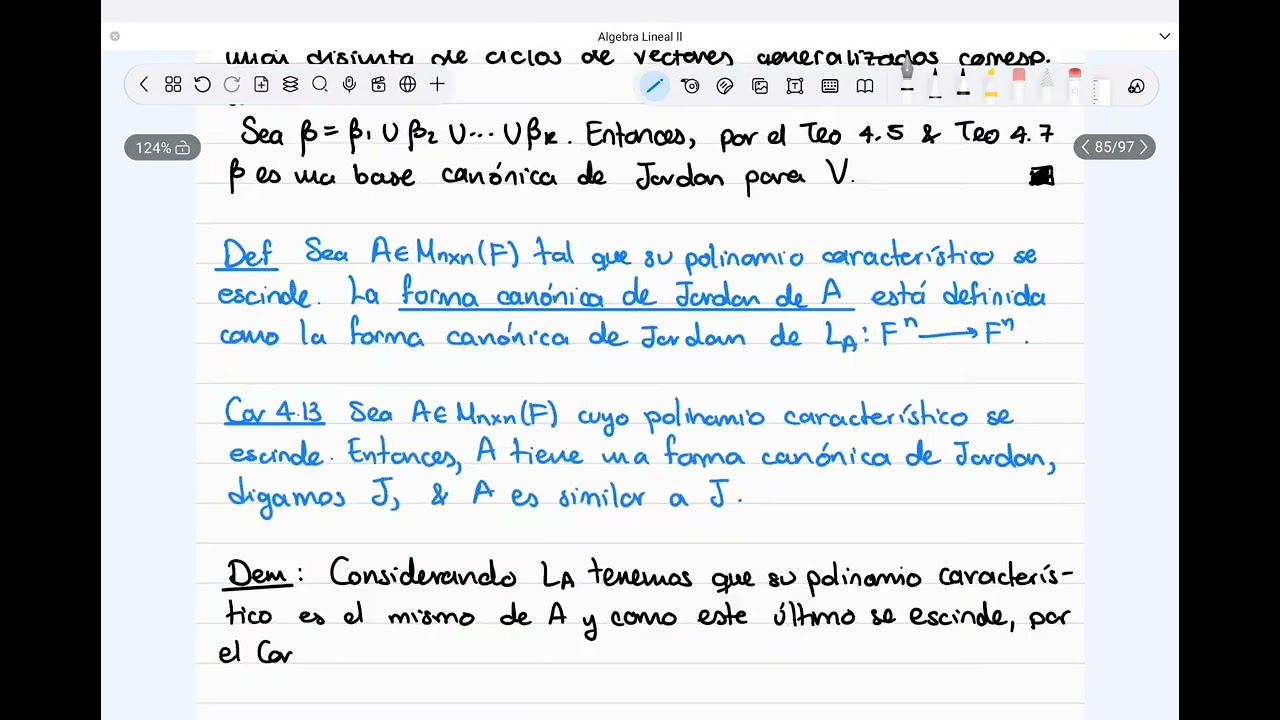 Algebra Lineal II
unión disjunta de ciclos de vectores generalizados corresp.
124%
85/97
Sea β = β₁ ∪ β₂ ∪ ··· ∪ βₖ. Entonces, por el Teo 4.5 & Teo 4.7
β es una base canónica de Jordan para V. ■
Def Sea A ∈ Mₙₓₙ(F) tal que su polinomio característico se
escinde. La forma canónica de Jordan de A está definida
como la forma canónica de Jordan de L_A : Fⁿ ⟶ Fⁿ.
Cor 4.13 Sea A ∈ Mₙₓₙ(F) cuyo polinomio característico se
escinde. Entonces, A tiene una forma canónica de Jordan,
digamos J, & A es similar a J.
Dem: Considerando L_A tenemos que su polinomio caracterís-
tico es el mismo de A y como este último se escinde, por
el Cor